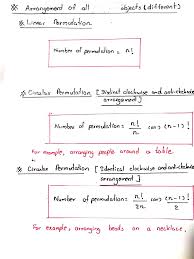 ※ Arrangement of all objects (different)
※ Linear Permutation
Number of permutation = n!
※ Circular Permutation [Distinct clockwise and anti-clockwise
arrangement]
Number of permutation = n!/n (or) (n-1)!
For example, arranging people around a table.
※ Circular Permutation [Identical clockwise and anti-clockwise
arrangement]
Number of permutation = n!/2n (or) (n-1)!/2
For example, arranging beads on a necklace,